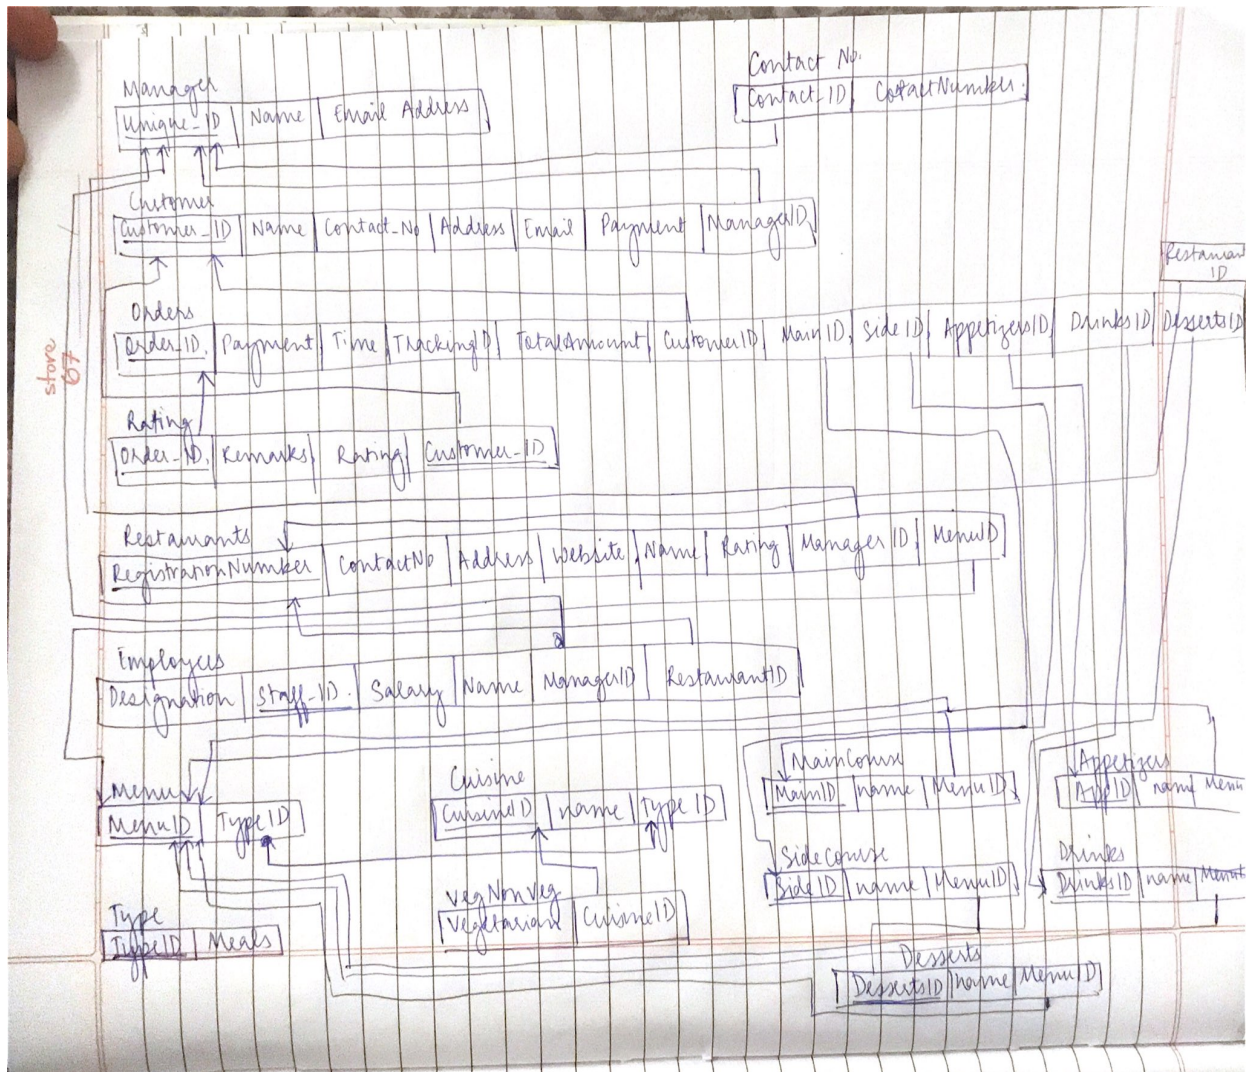 Manager
Unique_ID Name Email Address
Contact No.
Contact_ID CotactNumber.
Customer
Customer_ID Name Contact_No Address Email Payment ManagerID
Restaurant ID
Orders
Order_ID Payment Time TrackingID TotalAmount CustomerID MainID SideID AppetizersID DrinksID DessertsID
store
67
Rating
Order_ID Remarks Rating Customer_ID
Restaurants
RegistrationNumber ContactNo Address Website Name Rating Manager ID MenuID
Employees
Designation Staff_ID Salary Name ManagerID RestaurantID
Menu
MenuID TypeID
Cuisine
CuisineID name Type ID
MainCourse
MainID name MenuID
Appetizers
AppID name Menu
SideCourse
SideID name MenuID
Drinks
DrinksID name MenuI
VegNonVeg
Vegetarian CuisineID
Type
TypeID Meals
Desserts
DessertsID name MenuID